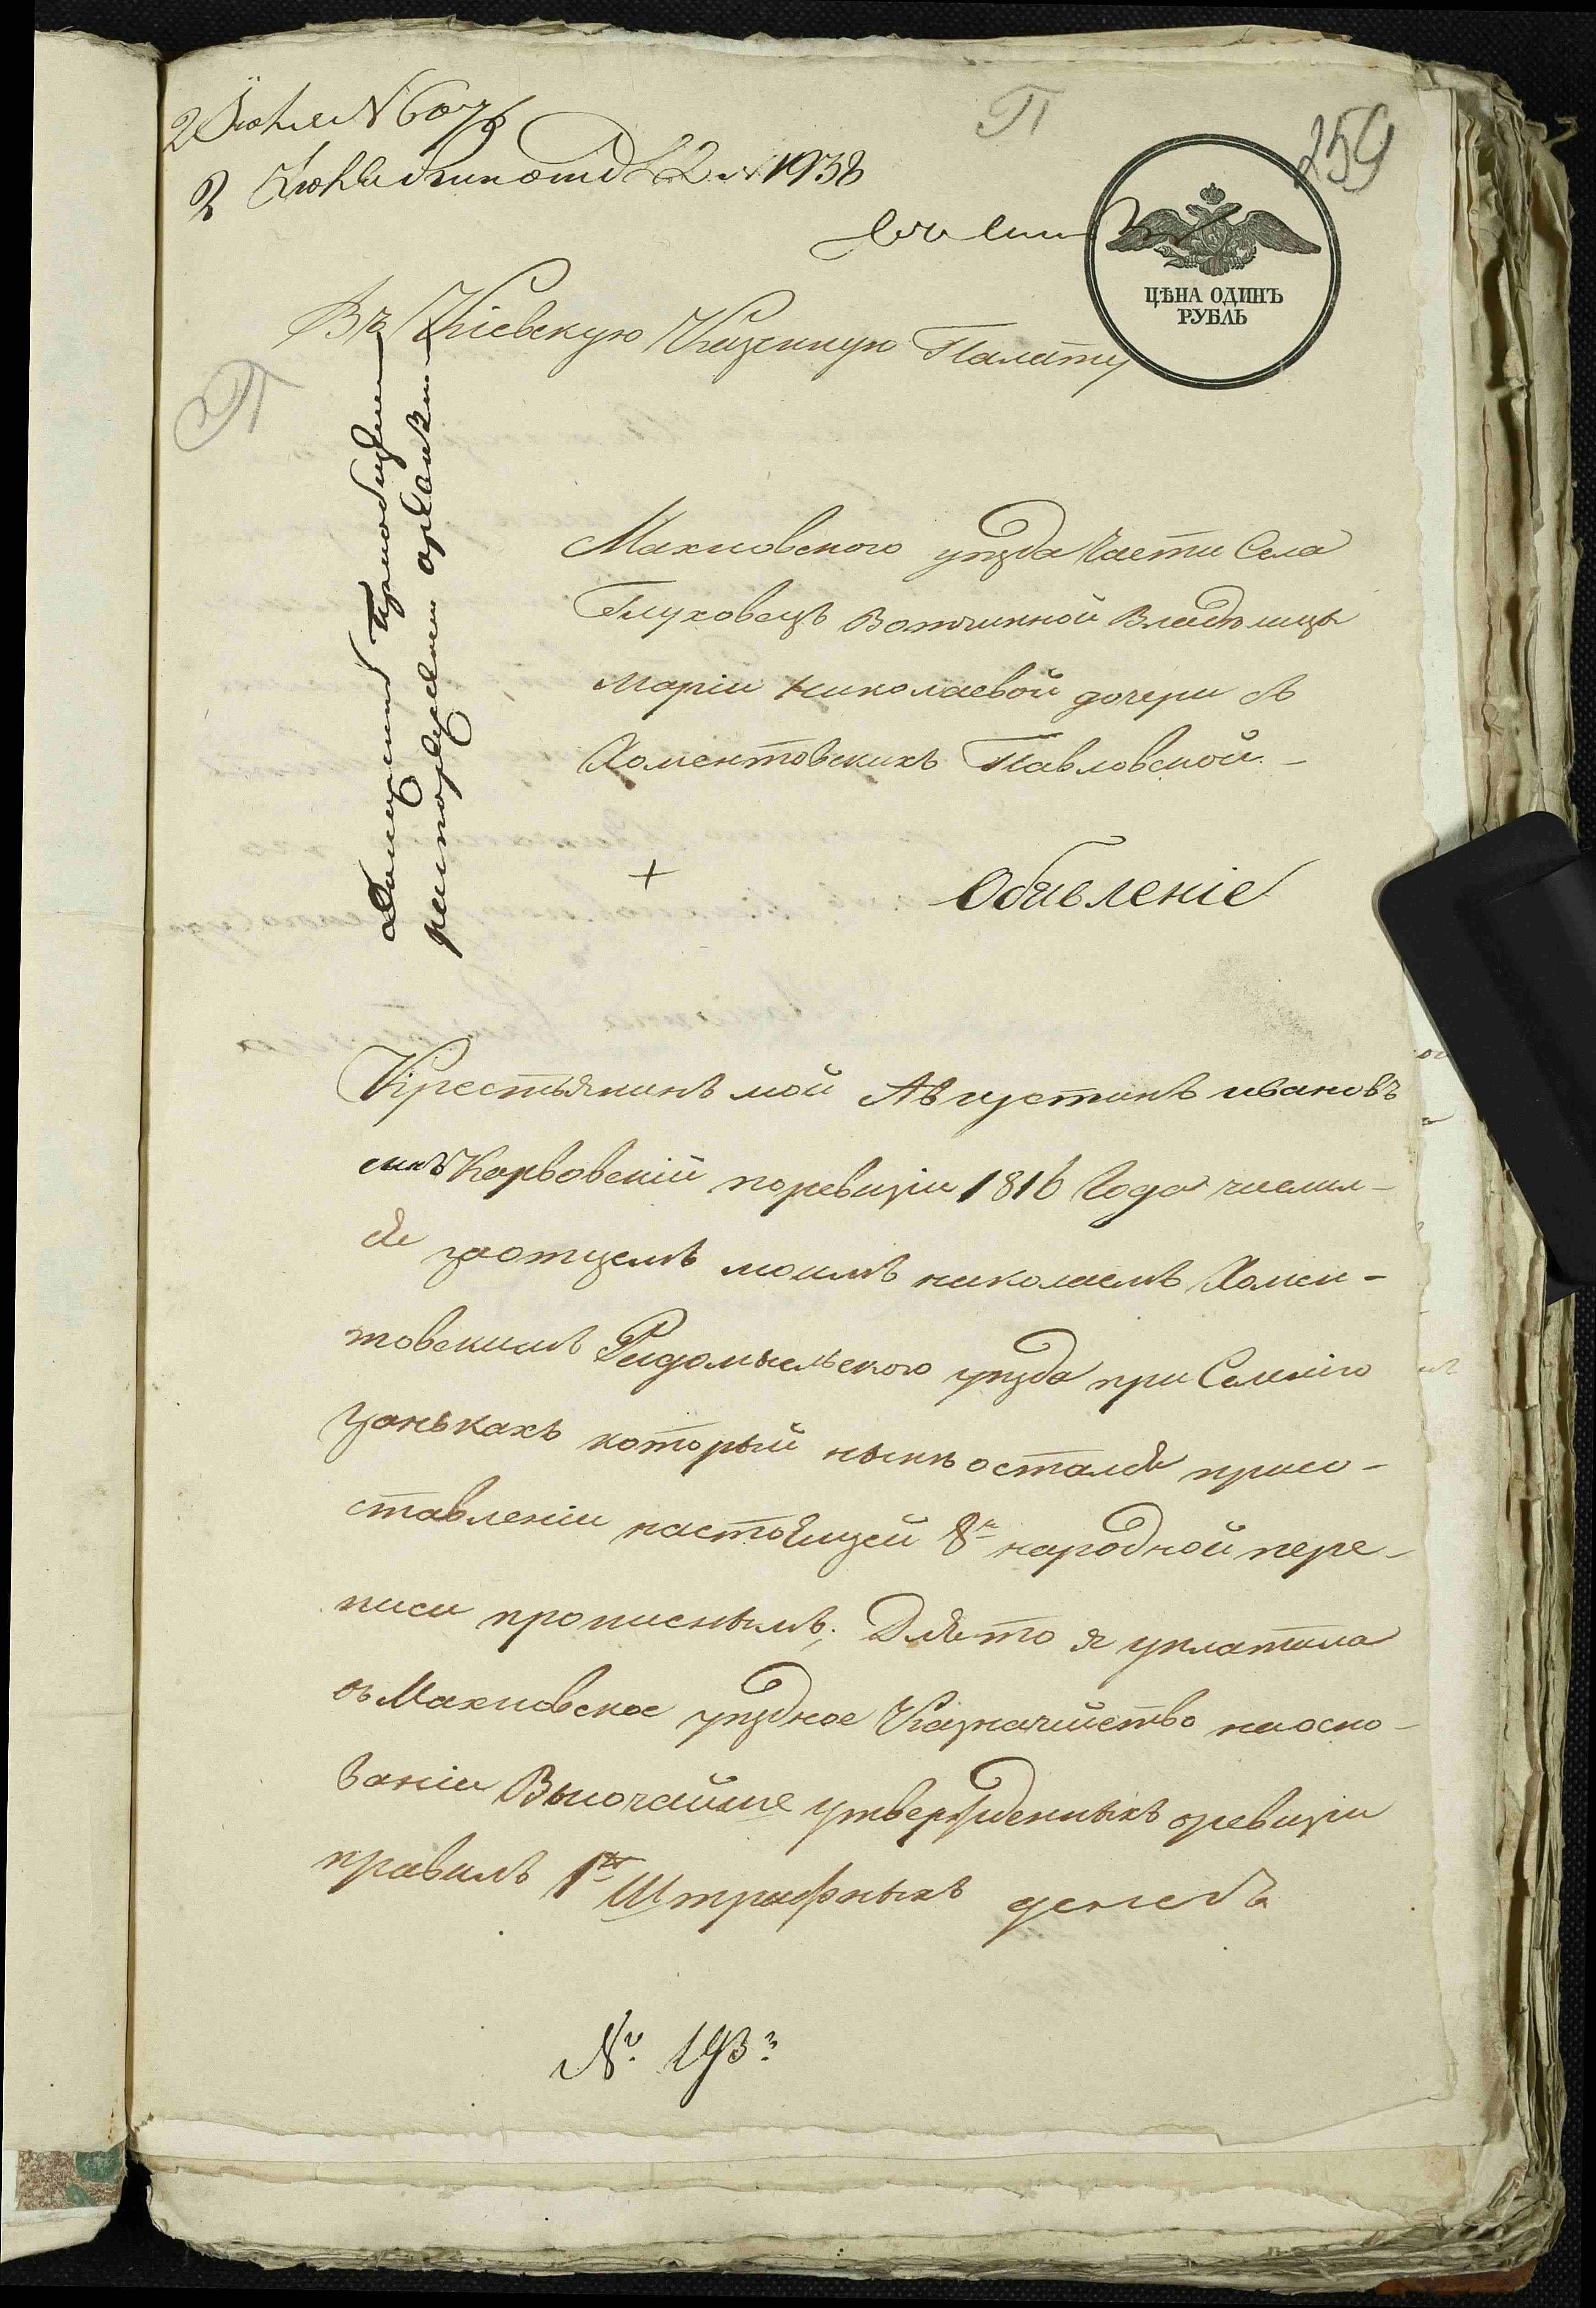 2 Іюня N 6076
2 Іюня
1938
П
259
ЦѢНА ОДИНЪ
РУБЛЬ
Въ Кіевскую Казенную Палату
П
Махновского уѣзда части Села
Глуховецъ Вотчинной Владѣлицы
Маріи Николаевой дочери съ
Хоментовскихъ Павловской
Объявленіе
Крестьянинъ мой Августинъ ивановъ
сынъ Карвовскій поревизіи 1816 Года числил-
ся заотцемъ моимъ николаемъ Хомен-
товскимъ Радомысльского уѣзда при Селеніи
который нынѣ остался присо-
ставленіи настоящей 8й народной пере-
писи прописнымъ; Для то я уплатила
въ Махновское уѣздное Казначейство наосно-
ваніи Высочайше утвержденныхъ оревизіи
правилъ 1е Штрафныхъ денегъ
№ 193